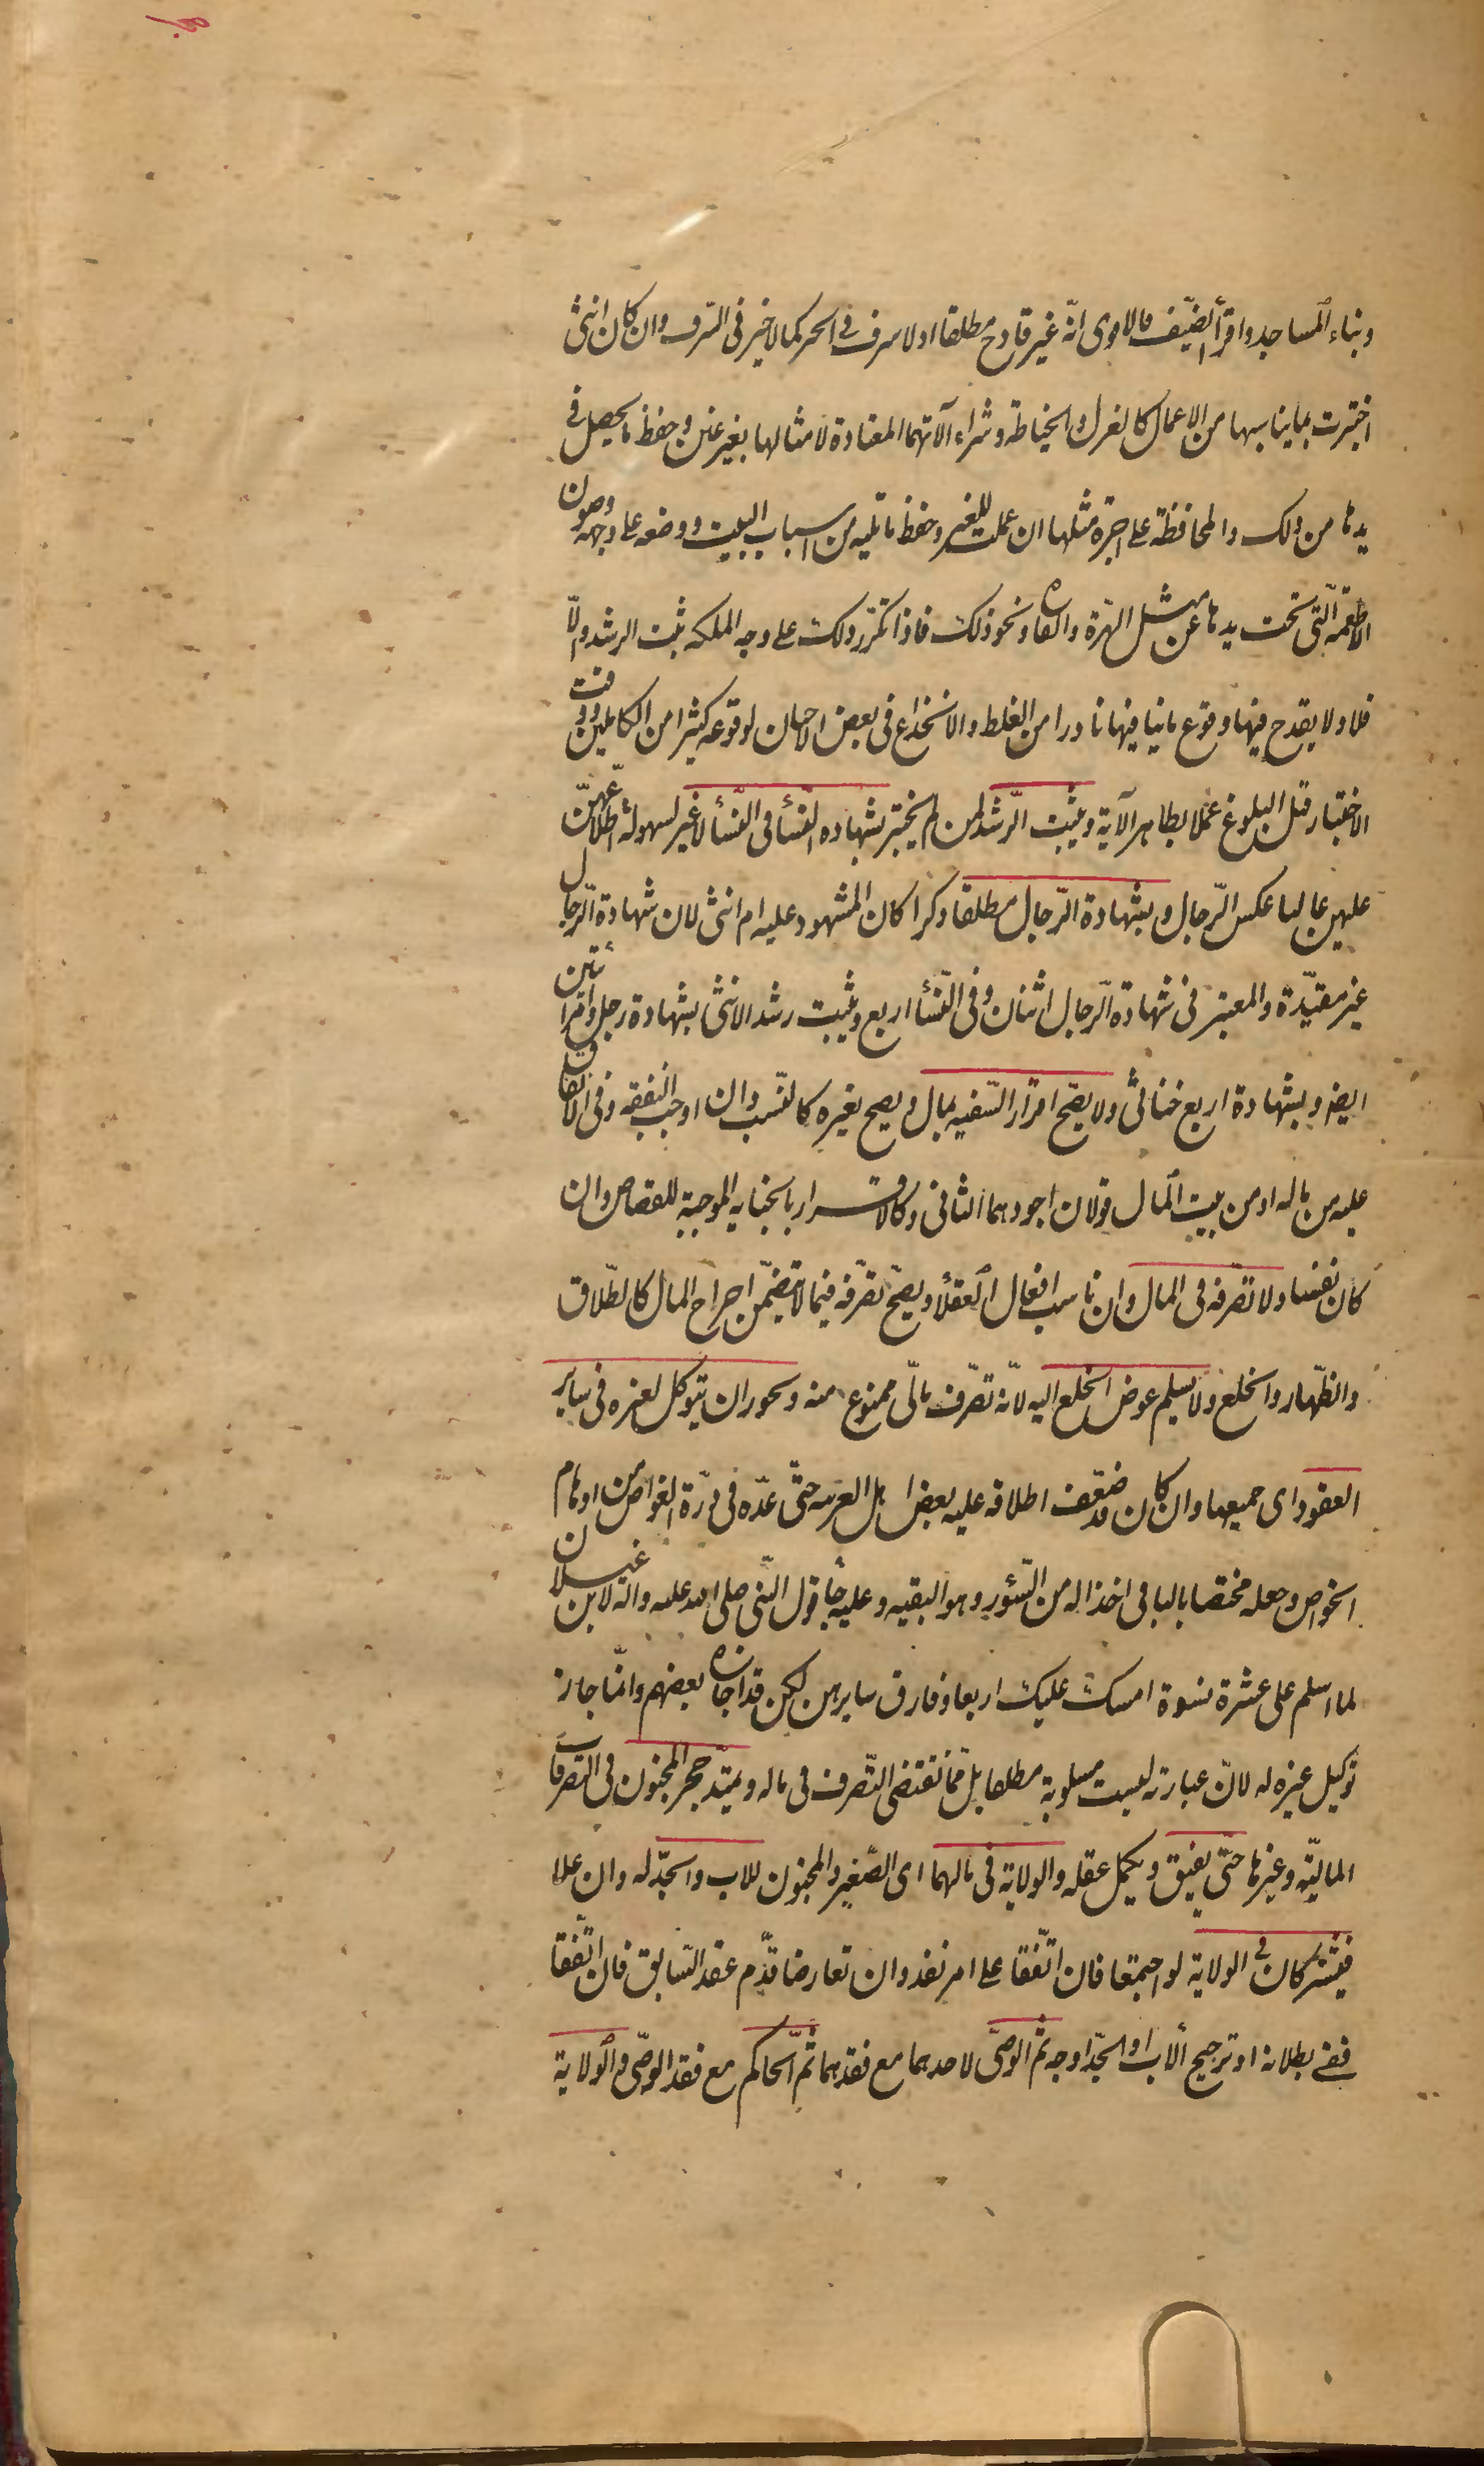 وبناء المساجد واقرأ الضيف فالاقوى انّه غير قادح مطلقا اذ لا سرف فى الخير كما لا خير فى السّرف وان كان انثى
اختبرت بما يناسبها من الاعمال كالغزل والخياطة وشراء آلاتهما المعتادة لامثالها بغير غبن وحفظ ما يحصل فى
يدها من ذلك والمحافظة على اجرة مثلها ان عملت للغير وحفظ ما تليه من اسباب البيت ووضعه على وجهه وصون
الاطعمة الّتى تحت يدها عن مثل الهرّة والفاره ونحو ذلك فاذا تكرّر ذلك على وجه الملكه ثبت الرشد والّا
فلا ولا يقدح فيها وقوع ما ينافيها نادرا من الغلط والانخداع فى بعض الاحيان لوقوعه كثيرا من الكاملين ووقت
الاختبار قبل البلوغ عملا بظاهر الآية ويثبت الرّشد لمن لم يختبر بشهاده النّسأ فى النّسأ لا غير لسهولة اطلاعهنّ
عليهن غالبا عكس الرّجال وبشهادة الرّجال مطلقا ذكرا كان المشهود عليه ام انثى لان شهادة الرّجال
غير مقيّدة والمعتبر فى شهادة الرّجال اثنان وفى النّسأ اربع ويثبت رشد الانثى بشهادة رجل وامرأتين
ايضا وبشهادة اربع خناثى ولا يصّح اقرار السّفيه بمال ويصح بغيره كالنّسب وان اوجب النفقه وفى الانفاق
عليه من ماله او من بيت المال قولان اجودهما الثانى وكالاقرار بالجنايه الموجبة للقصاص وان
كان نفسا ولا تصّرفه فى المال وان ناسب افعال العقلأ ويصحّ تصّرفه فيما لا يتضمّن اخراج المال كالطّلاق
والظّهار والخلع ولا يسلم عوض الخلع اليه لانّه تصّرف مالّى ممنوع منه ويجوز ان يتوكل لغيره فى ساير
العقود اى جميعها وان كان قد ضعّف اطلاقه عليه بعض اهل العربيه حتّى عدّه فى درّة الغواص من اوهام
الخواص وجعله مختصا بالباقى اخذا له من السّؤر وهو البقيه وعليه جأ قول النّبى صلى الله عليه واله لابن غيلان
لما اسلم على عشرة نسوة امسك عليك اربعا وفارق سايرهن لكن قد اجازه بعضهم وانّما جاز
توكيل غيره له لانّ عبارته ليست مسلوبة مطلقا بل ممّا تقتضى التّصرف فى ماله ويمتّد حجر المجنون فى التّصرفات
الماليّه وغيرها حتّى يفيق ويكمل عقله والولاية فى مالهما اى الصّغير والمجنون للاب والجدّ له وان علا
فيشتركان فى الولاية لو اجتمعا فان اتّفقا على امر نفذ وان تعارضا قدّم عقد السّابق فان اتّفقا
ففى بطلانه او ترجيح الاب او الجدّ اوجه ثمّ الوصّى لاحدهما مع فقدهما ثمّ الحاكم مع فقد الوصّى والولاية